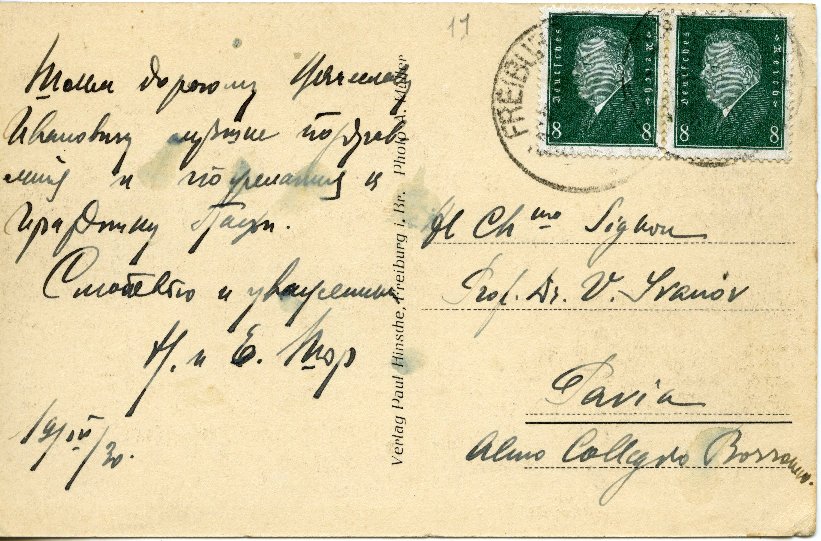 17
Шлем дорогому Вячеславу
Ивановичу лучшие поздрав-
ления и пожелания к
празднику Пасхи.
С любовью и уважением
Н. и Е. Шор
19/IV/30.
Verlag Paul Hinsche, Freiburg i. Br. Photo A. Müller
FREIBU
Deutsches Reich
8 8
Deutsches Reich
8 8
Al Ch mo Signor
Prof. Dr. V. Ivanóv
Pavia
Almo Collegio Borromeo.